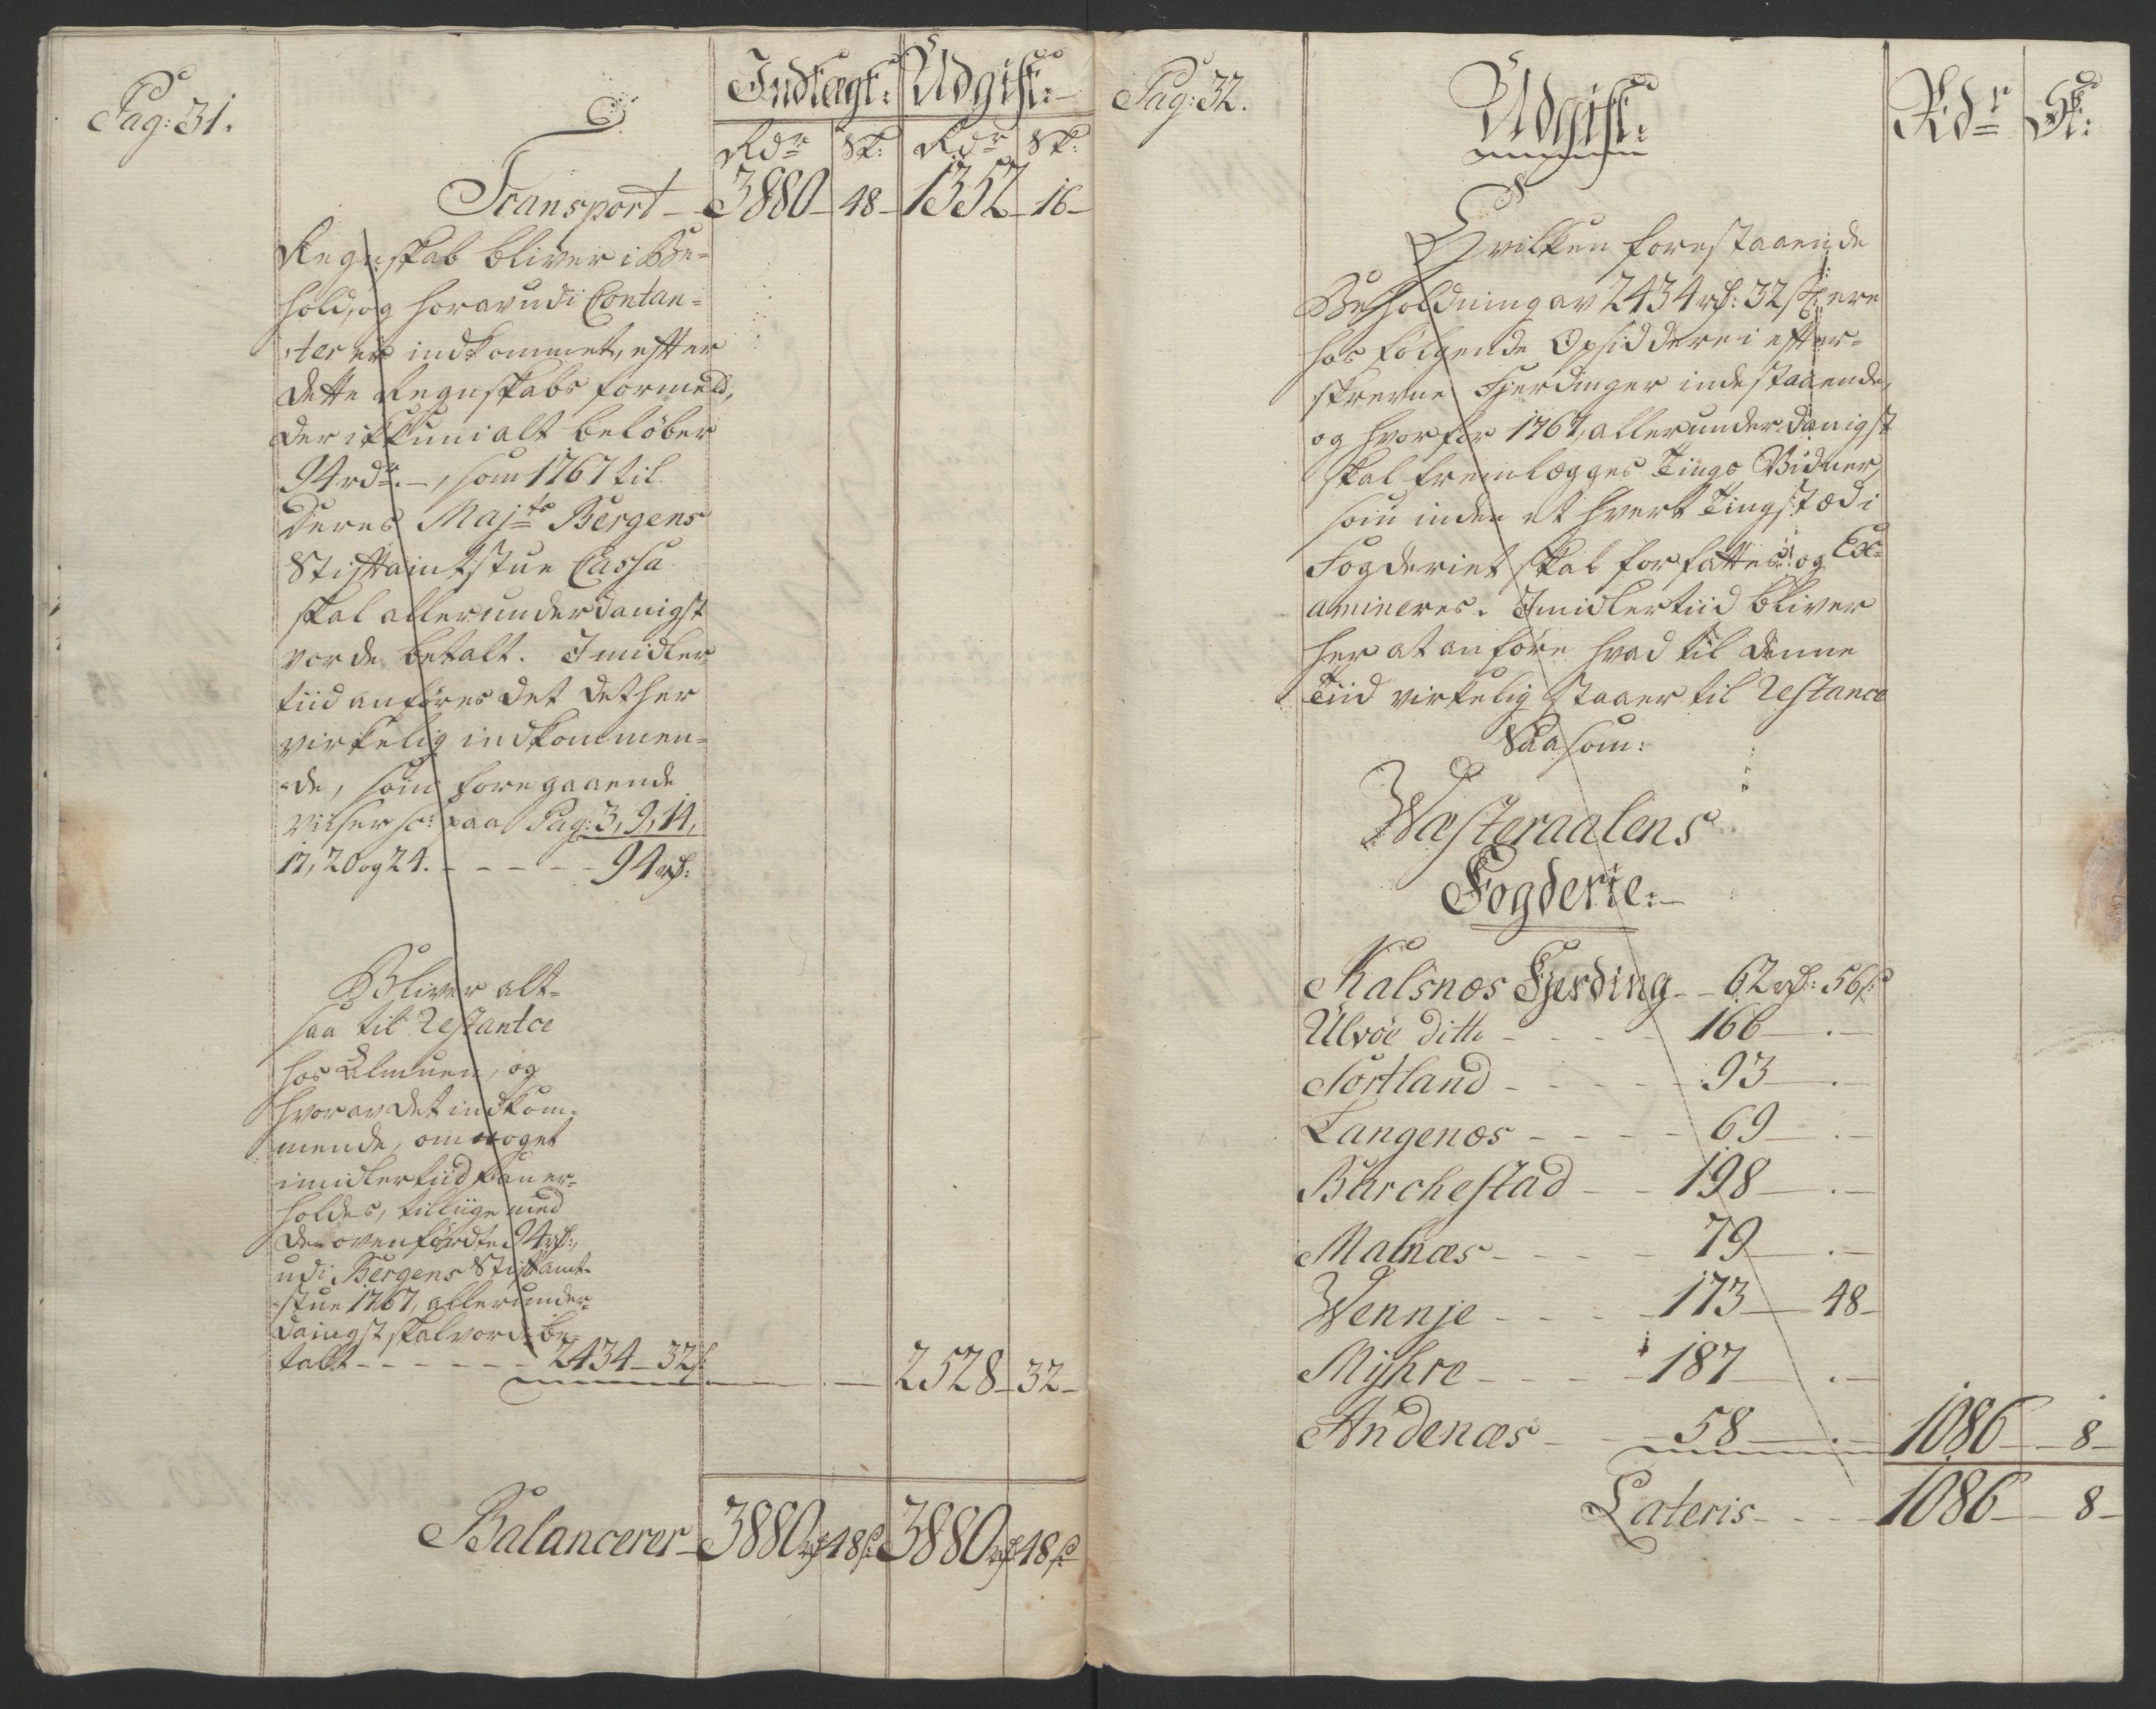 Pag: 31.
Indtægt: Udgift:
Rdr Sk: Rdr Sk:
Transport 3880 - 48 - 1352 - 16 -
Regnskab bliver i Be-
hold, og horav udi Contan-
ter er indkommet, efter
dette Regnskabs formeld,
der ikkun i alt beløber
94 rdr. -, som 1767 til
Deres Majts Bergens
Stiftamtstue Cassa
skal allerunderdanigst
vorde betalt. Imidler
tiid anføres det det her
virkelig indkommen-
de, som foregaaende
viiser sc: paa Pag: 3, 9, 14,
17, 20 og 24. - - - - - 94 rd:
Bliver alt-
saa til Restantce
hos Almuen, og
hvorav det indkom-
mende, om noget
imidlertiid kan er-
holdes, tilliige med
de ovenførdte 94 rd:,
udi Bergens Stiftamt-
stue 1767, allerunder-
danigst skal vorde be-
talt - - - - - - 2434 - 32 s: 2528 - 32 -
Balancerer 3880 rd 48 s: 3880 rd 48 s:
Pag: 32.
Udgift: Rdr Sk:
Hvilken forestaaende
Beholdning av 2434 rd: 32 s: ere
hos følgende Opsiddere i efter-
skrevne Fjerdinger indestaaende,
og hvorfor 1767, allerunderdanigst
skal fremlægges Tings Vidner,
som inden et hvert Tingstæd i
Fogderiet skal forfattes og Ex-
amineres. Imidlertiid bliver
her at anføre hvad til denne
Tiid virkelig staaer til Restance
Saasom:
Wæsteraalens
Fogderie:
Kalsnæs Fjerding - - 62 rd: 56 s:
Ulvøe ditto - - - - 166 - . -
Sortland - - - - - 93 - . -
Langenæs - - - - - 69 - . -
Barchestad - - 198 - . -
Malnæs - - - - 79 - . -
Wennje - - - - 173 - 48 -
Myhre - - - - 187 - . -
Andenæs - - - 58 - . - 1086 - 8 -
Lateris - - - 1086 - 8 -